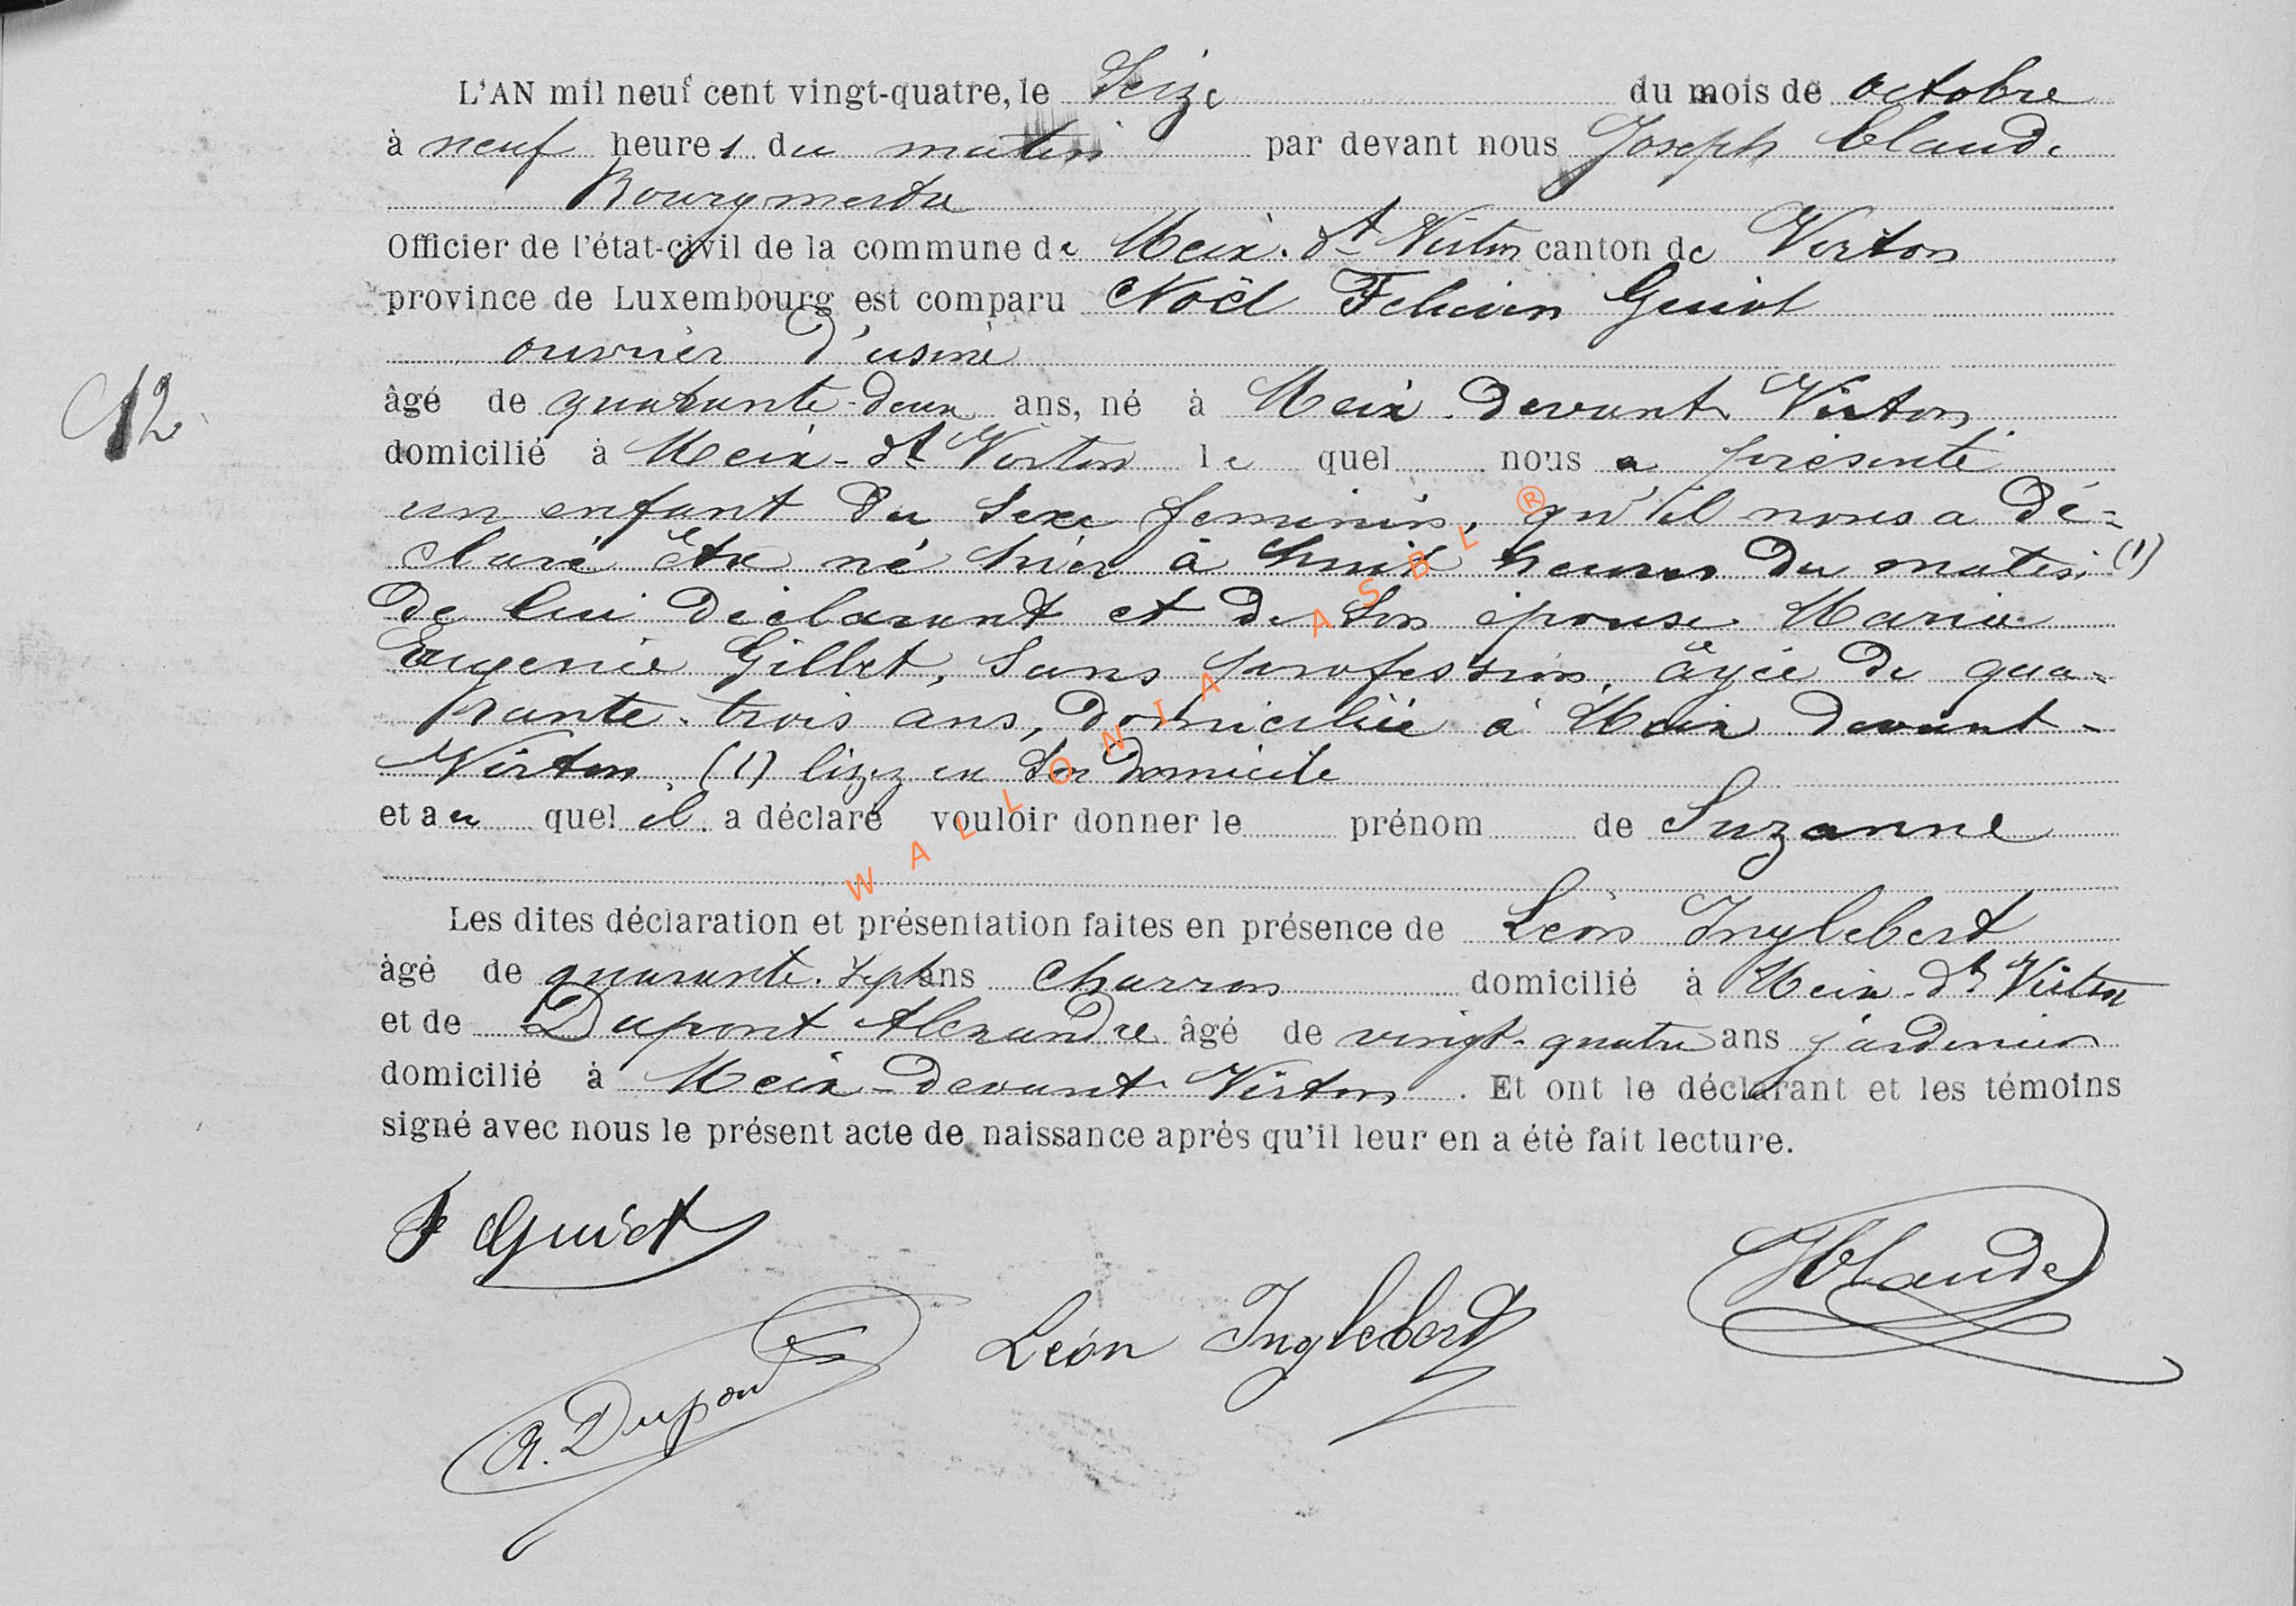 L'AN mil neuf cent vingt-quatre, le Seize du mois de octobre
à neuf heures du matin par devant nous Joseph Claude
Bourgmestre
Officier de l'état-civil de la commune de Meix-dt Virton canton de Virton
province de Luxembourg est comparu Noël Felicien Guiot
ouvrier d'usine
âgé de quarante-deux ans, né à Meix devant Virton
domicilié à Meix-dt Virton le quel nous a présenté
un enfant du sexe feminin, qu'il nous a dé-
claré être né hier à huit heures du matin (1)
de lui déclarant et de son épouse Marie
Eugenie Gillet, sans profession, âgée de qua-
rante-trois ans, domiciliée à Meix devant-
Virton. (1) lizez en son domicile
et au quel il a déclaré vouloir donner le prénom de Suzanne
Les dites déclaration et présentation faites en présence de Léon Inglebert
âgé de quarante-sept ans charron domicilié à Meix-dt Virton
et de Dupont Alexandre âgé de vingt-quatre ans jardinier
domicilié à Meix-devant-Virton. Et ont le déclarant et les témoins
signé avec nous le présent acte de naissance après qu'il leur en a été fait lecture.
12
F Guiot
JClaude
Léon Inglebert
A. Dupont
WALLONIA ASBL ®